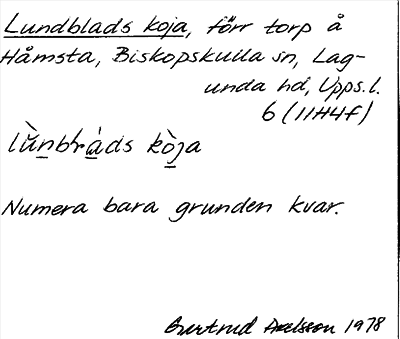 Lundblads koja, förr torp å
Håmsta, Biskopskulla sn, Lag-
unda hd, Upps. l.
6 (11H4f)
lùnbrads kòja
Numera bara grunden kvar.
Gertrud Axelsson 1978